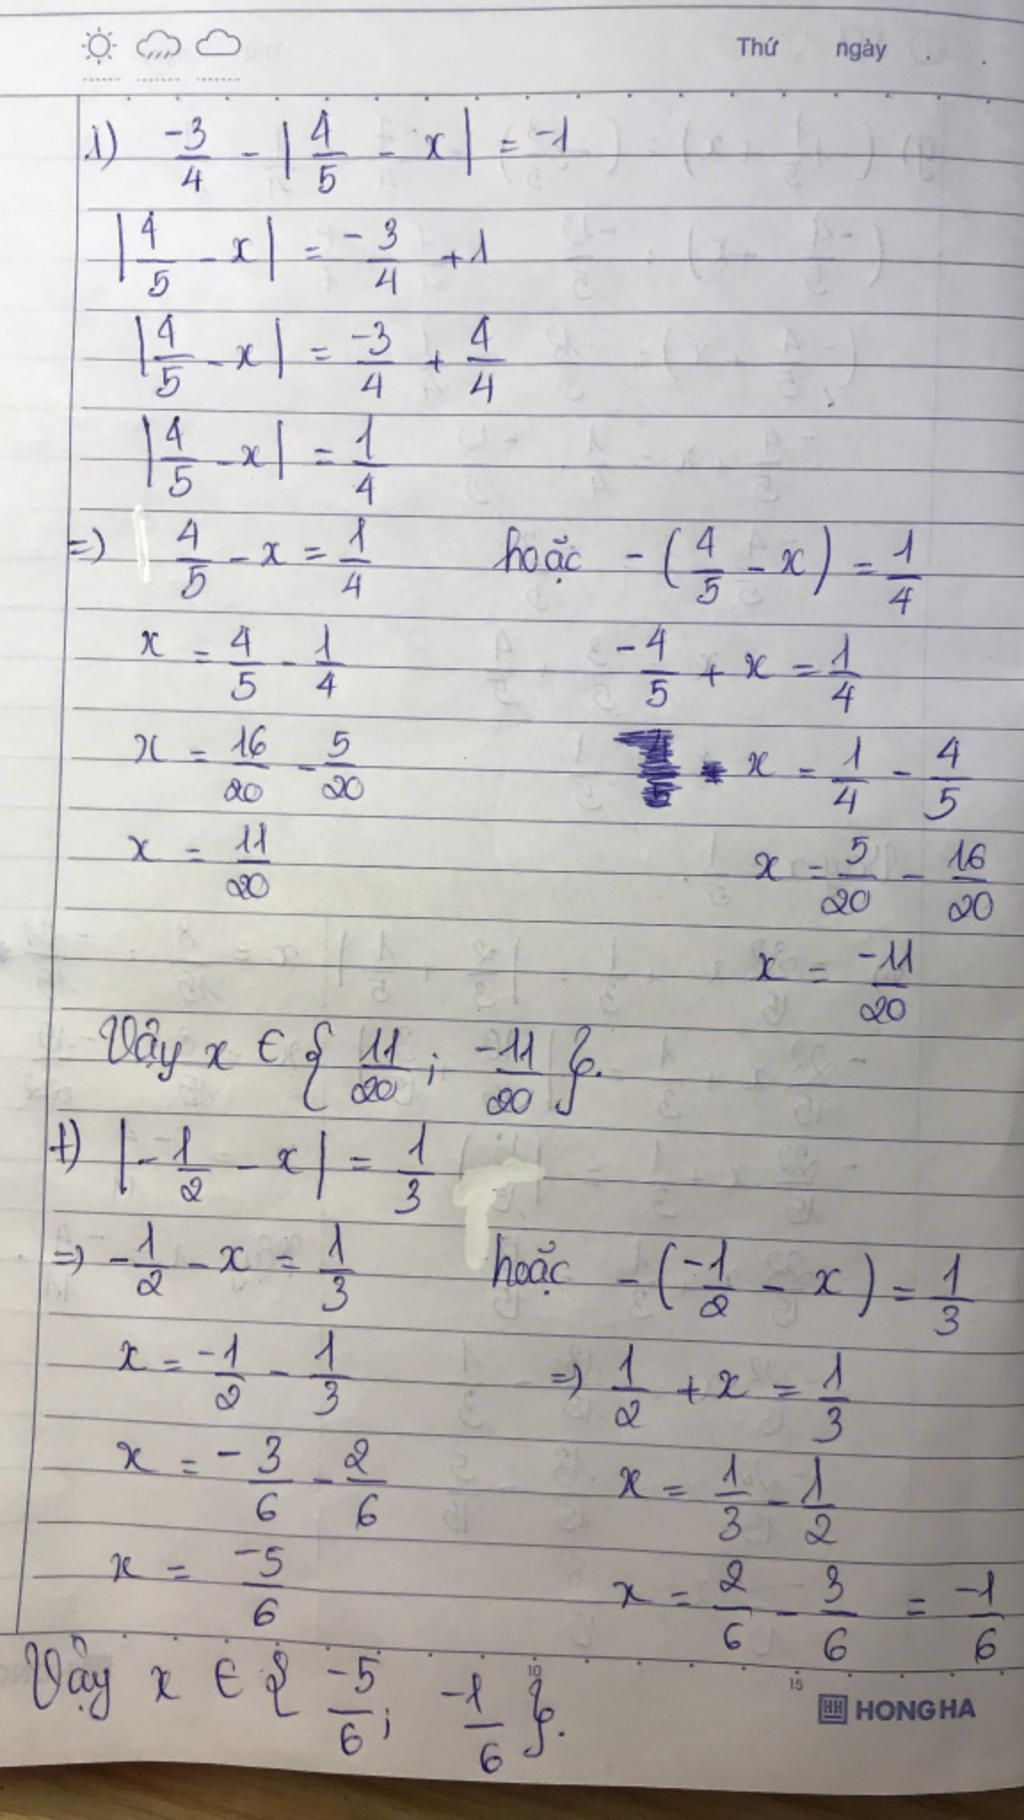 Thứ ngày
1) -3/4 - |4/5 - x| = -1
|4/5 - x| = -3/4 + 1
|4/5 - x| = -3/4 + 4/4
|4/5 - x| = 1/4
=) 4/5 - x = 1/4 hoặc - (4/5 - x) = 1/4
x = 4/5 - 1/4 -4/5 + x = 1/4
x = 16/20 - 5/20 x = 1/4 - 4/5
x = 11/20 x = 5/20 - 16/20
x = -11/20
Vậy x ∈ { 11/20 ; -11/20 }.
t) |-1/2 - x| = 1/3
=) -1/2 - x = 1/3 hoặc - (-1/2 - x) = 1/3
x = -1/2 - 1/3 =) 1/2 + x = 1/3
x = -3/6 - 2/6 x = 1/3 - 1/2
x = -5/6 x = 2/6 - 3/6 = -1/6
Vậy x ∈ { -5/6 ; -1/6 }.
10 15
HH HONG HA